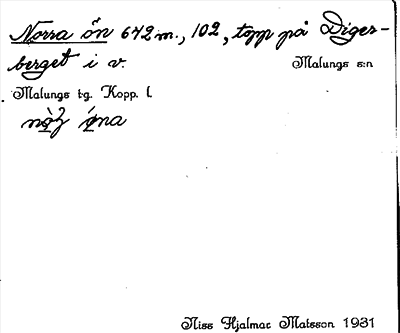 Norra ön 642 m., 102, topp på Diger-
berget i v. Malungs s:n
Malungs tg. Kopp. l.
Niss Hjalmar Matsson 1931